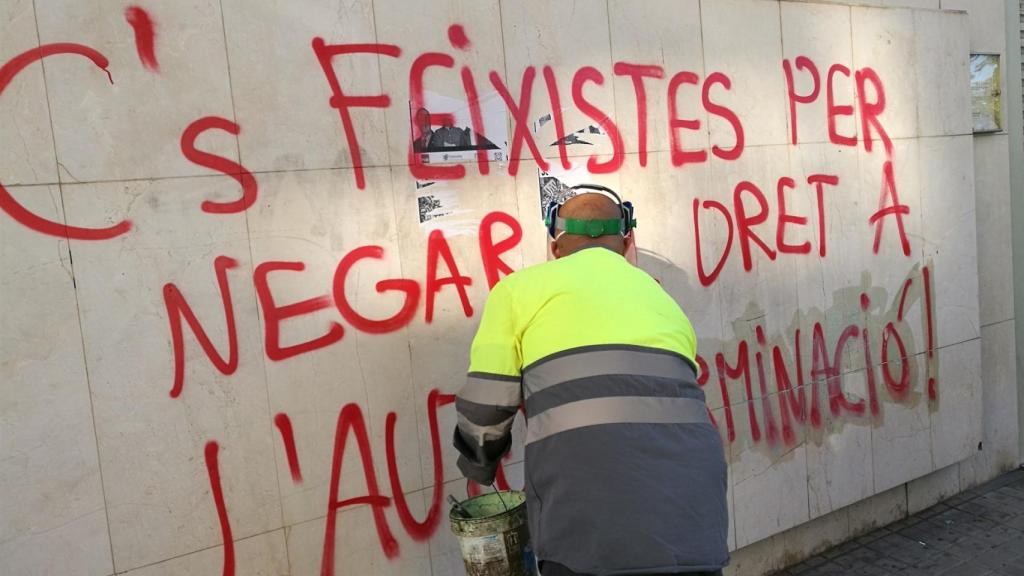 C's FEIXISTES PER
NEGAR DRET A
L'AU MINACIÓ!